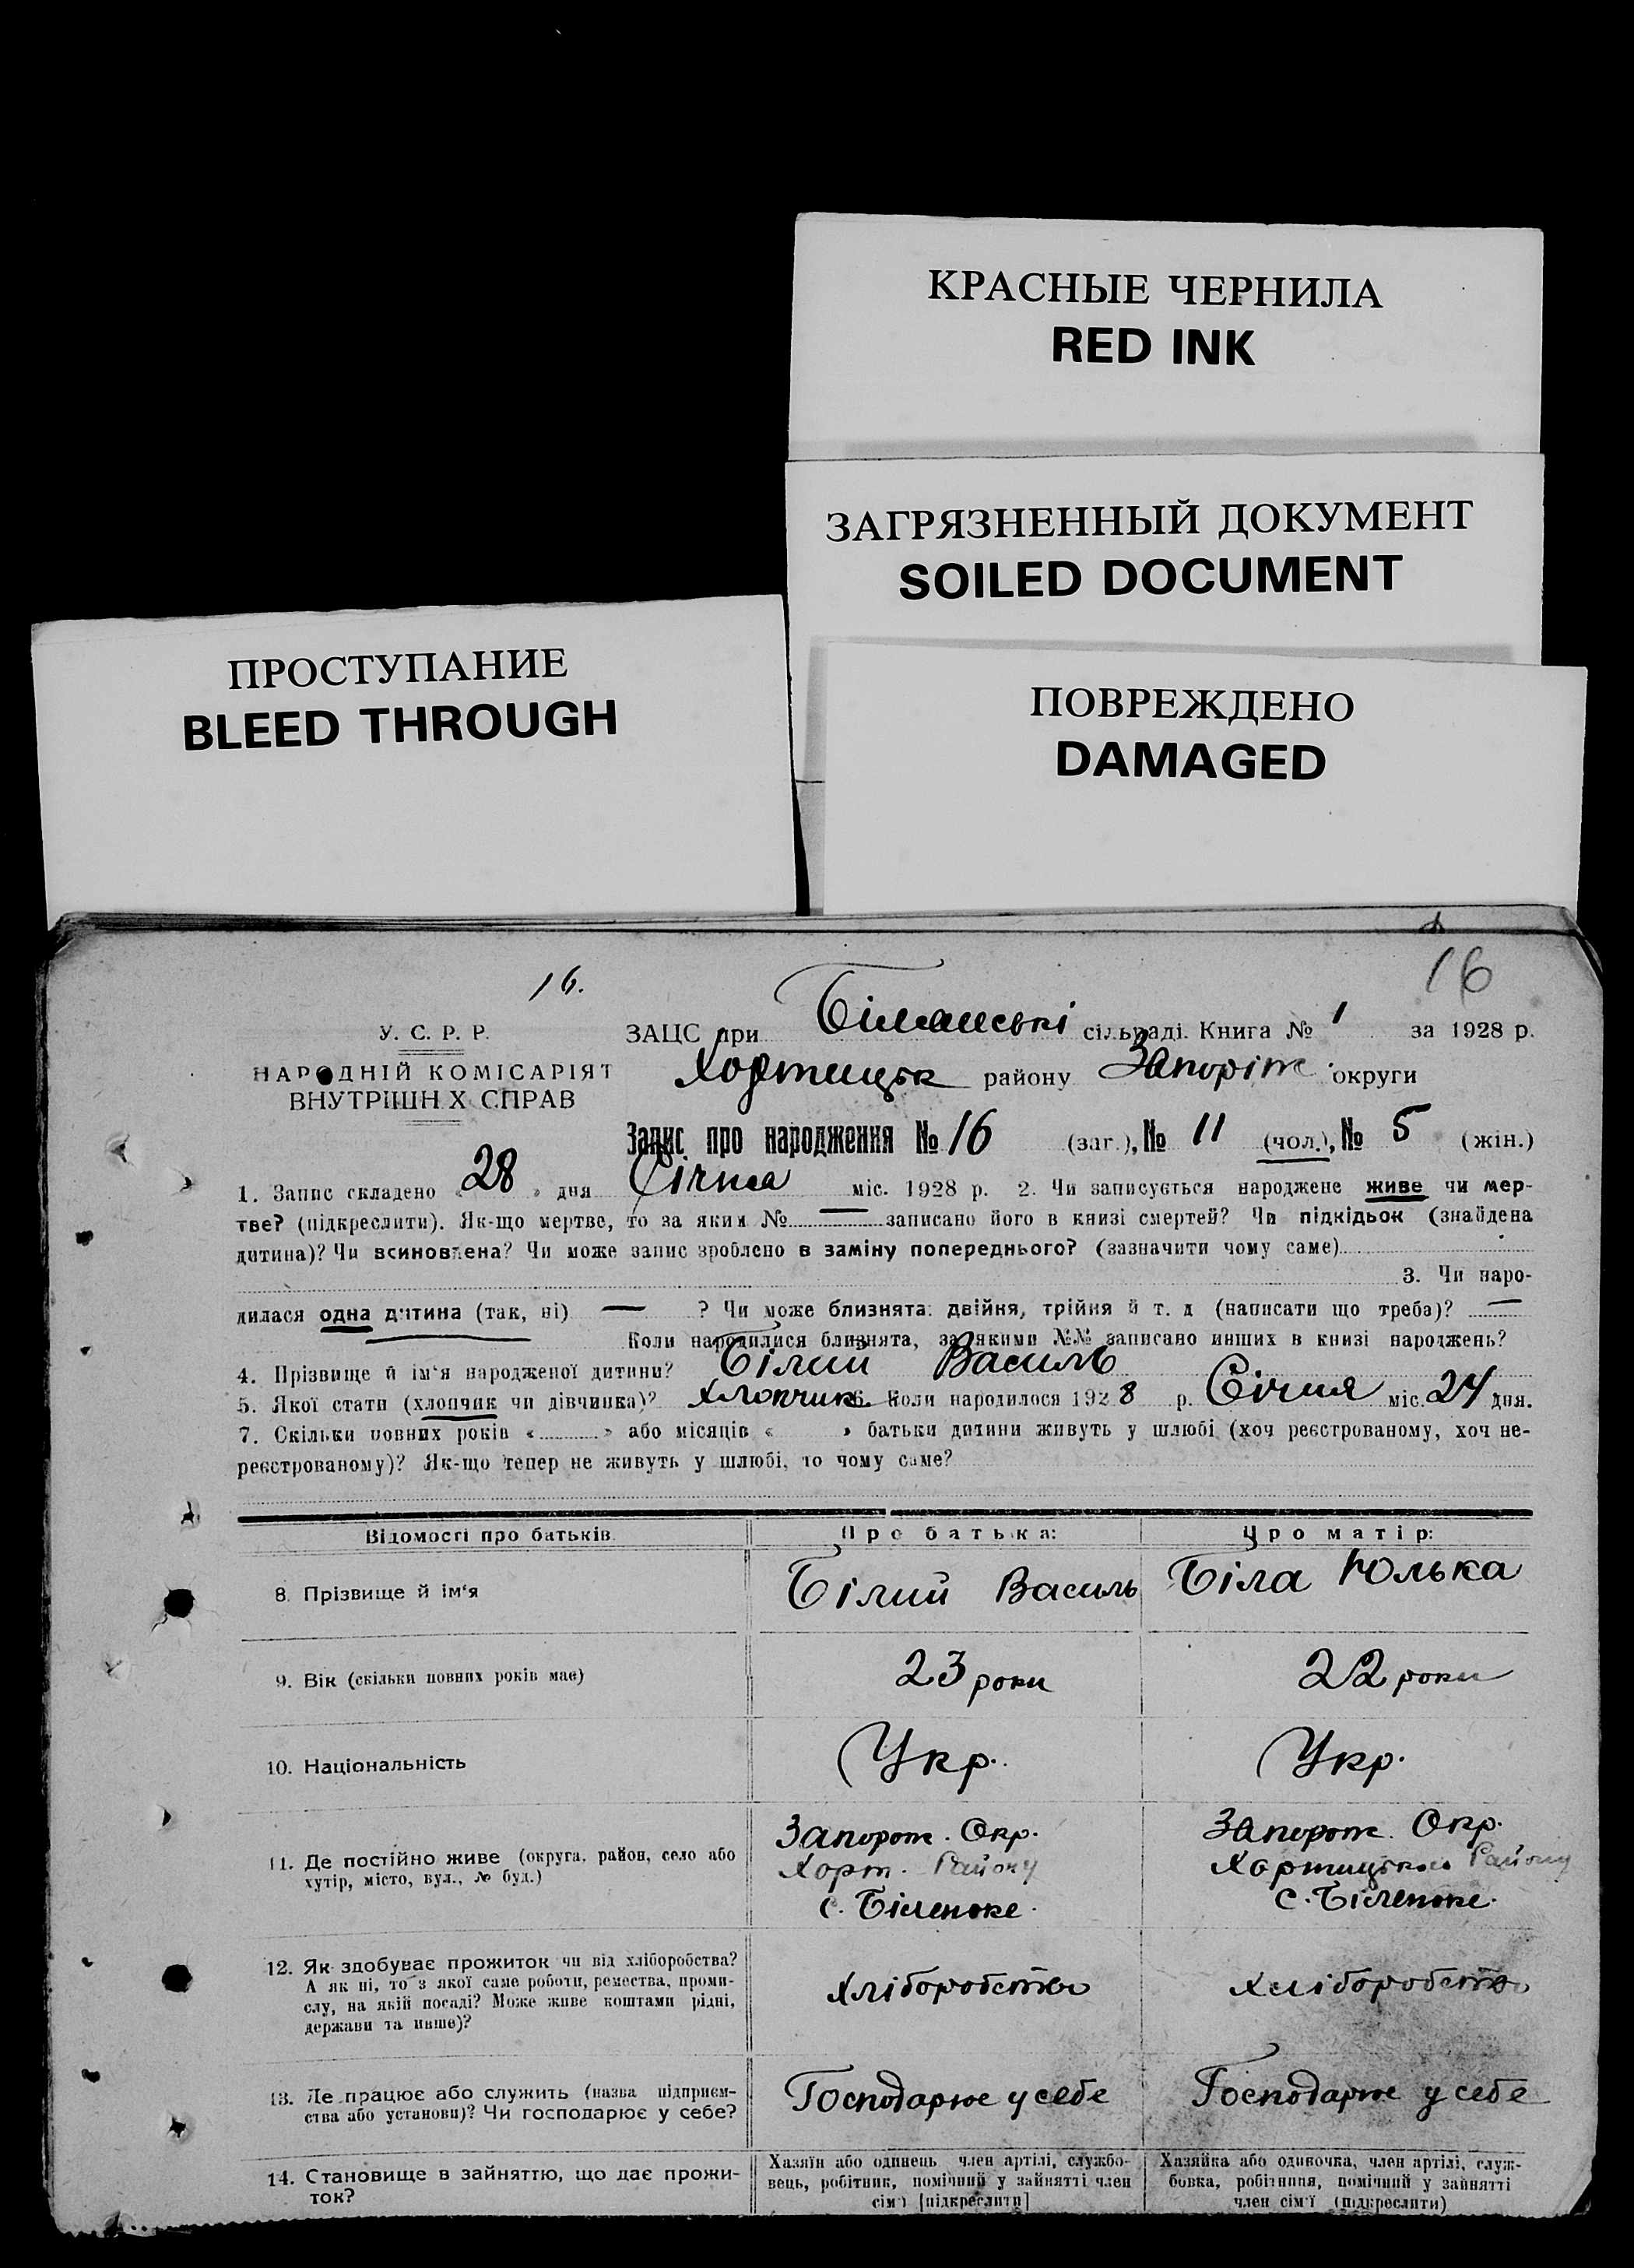 КРАСНЫЕ ЧЕРНИЛА
RED INK
ЗАГРЯЗНЕННЫЙ ДОКУМЕНТ
SOILED DOCUMENT
ПРОСТУПАНИЕ
BLEED THROUGH
ПОВРЕЖДЕНО
DAMAGED
16.
16
У. С. Р. Р.
НАРОДНІЙ КОМІСАРІЯТ
ВНУТРІШН Х СПРАВ
ЗАЦС при сільраді. Книга № 1 за 1928 р.
Хортицьк району Запоріж округи
Запис про народження № 16 (заг.), № 11 (чол.), № 5 (жін.)
1. Запис складено « 28 » дня Січня міс. 1928 р. 2. Чи записується народжене живе чи мер-
тве? (підкреслити). Як-що мертве, то за яким № — записано його в книзі смертей? Чи підкідьок (знайдена
дитина)? Чи всиновлена? Чи може запис зроблено в заміну попереднього? (зазначити чому саме)
3. Чи наро-
дилася одна дитина (так, ні) — ? Чи може близнята: двійня, трійня й т. д (написати що треба)? —
Коли народилися близнята, за якими №№ записано инших в книзі народжень?
4. Прізвище й ім'я народженої дитини? Білий Василь
5. Якої стати (хлопчик чи дівчинка)? Хлопчик 6. Коли народилося 1928 р. Січня міс. 24 дня.
7. Скільки повних років « » або місяців « » батьки дитини живуть у шлюбі (хоч реєстрованому, хоч не-
реєстрованому)? Як-що тепер не живуть у шлюбі, то чому саме?
Відомості про батьків Про батька: Про матір:
8. Прізвище й ім'я Білий Василь Біла Юлька
9. Вік (скільки повних років має) 23 роки 22 роки
10. Національність Укр. Укр.
11. Де постійно живе (округа, район, село або
хутір, місто, вул., № буд.)
Запорож. Окр.
Хорт. Району
с. Біленьке.
Запорож. Окр.
Хортицького Району
с. Біленьке.
12. Як здобуває прожиток чи від хліборобства?
А як ні, то з якої саме роботи, ремества, проми-
слу, на якій посаді? Може живе коштами рідні,
держави та инше)?
Хліборобство
Хліборобство
13. Де працює або служить (назва підприєм-
ства або установи)? Чи господарює у себе?
Господарює у себе
Господарює у себе
14. Становище в зайняттю, що дає прожи-
ток?
Хазяїн або одинець член артілі, службо-
вець, робітник, помічний у зайнятті член
сім'ї [підкреслити]
Хазяйка або одиночка, член артілі, служ-
бовка, робітниця, помічний у зайнятті
член сім'ї (підкреслити)